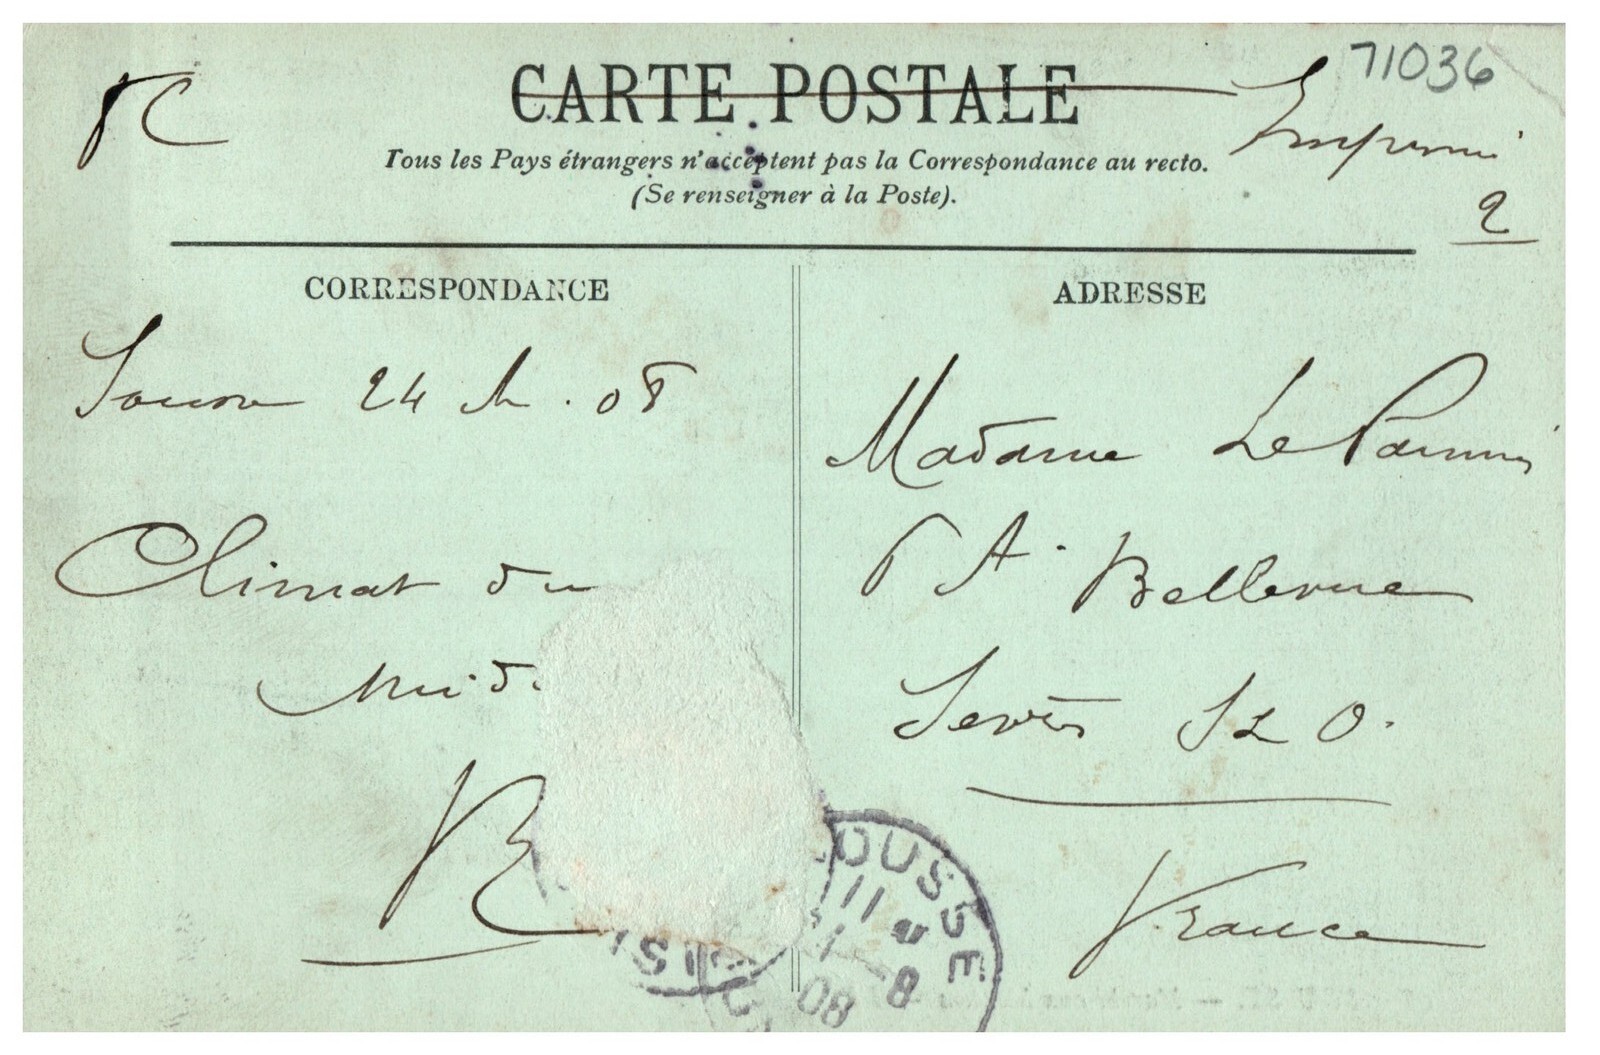 71036
CARTE POSTALE
Imprimé
2
Tous les Pays étrangers n'acceptent pas la Correspondance au recto.
(Se renseigner à la Poste).
CORRESPONDANCE
ADRESSE
24 08
Climat du
midi
Madame Le
A. Bellevue
Sèvres S & O.
France
OUSSE
11
08